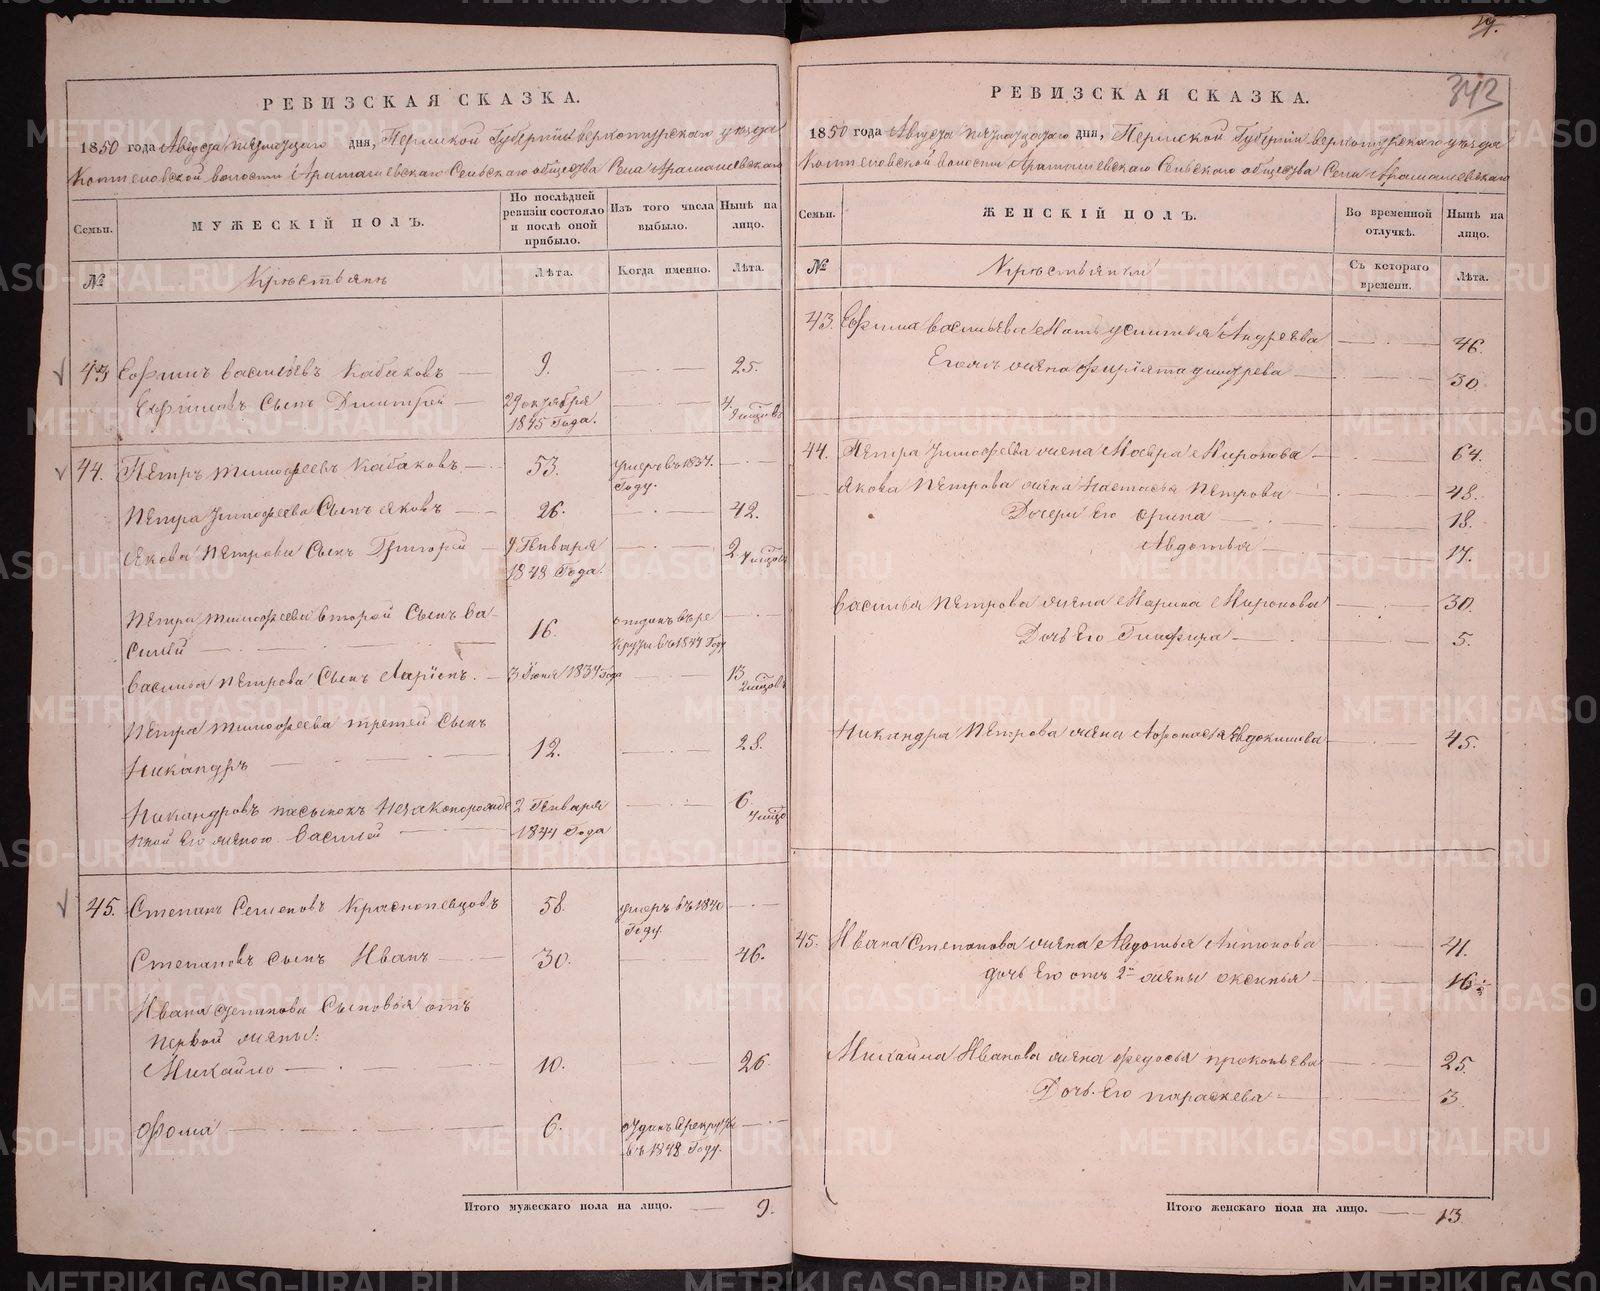 19.
343
РЕВИЗСКАЯ СКАЗКА.
1850 года Августа дня, Пермской Губерніи верхотурскаго уѣзда
волости Арамашевскаго Сельскаго общества Села Арамашевскаго
Семьи.
МУЖЕСКІЙ ПОЛЪ.
По послѣдней ревизіи состояло и послѣ оной прибыло.
Изъ того числа выбыло.
Нынѣ на лицо.
№
Крѣстьянѣ
Лѣта.
Когда именно.
Лѣта.
43 Софринъ васильевъ Кабаковъ 9. 25.
Сынъ Дмитрей 29 октября 1845 Года. 4.
44. Пѣтръ тимофѣевъ Кабаковъ 53. умеръ въ 1837. Году.
Пѣтра Сынъ яковъ 26. 42.
Якова Пѣтрова Сынъ Григорій 9 Генваря 1848 Года. 2
Пѣтра тимофѣева второй Сынъ Ва-
силей 16. отданъ въ ре
круты въ 1847 Году
Василья Пѣтрова Сынъ Ларіонъ. 3 Іюня 1837 Года 13
Пѣтра тимофѣева третей Сынъ
Никандръ 12. 28.
Никандровъ пасынокъ Незаконорожде 2 Генваря 6.
нной Его женою Василей 1844 Года
45. Степанъ Семеновъ Краснопевцовъ 58. умеръ въ 1840 Году.
Степановъ сынъ Иванъ 30. 46.
Ивана степанова Сыновья отъ
первой жены:
Михайло 10. 26
Фома 6. отданъ в рекруты
въ 1848 Году.
Итого мужескаго пола на лицо. 9.
РЕВИЗСКАЯ СКАЗКА.
1850 года Августа дня, Пермской Губерніи верхотурскаго уѣзда
волости Арамашевскаго Сельскаго общества Села Арамашевскаго
Семьи.
ЖЕНСКІЙ ПОЛЪ.
Во временной отлучкѣ.
Нынѣ на лицо.
№
Крѣстьянки
Съ котораго времени.
Лѣта.
43. васильева Мать Андрѣева 46.
Его жена 30
44. Пѣтра тимофѣева жена Мавра Миронова 64.
Якова Пѣтрова жена Настасья Пѣтрова 48.
Дочери Его Орина 18.
Авдотья 17.
Василья Пѣтрова жена Марина Миронова 30.
Дочь Его Глафира 5.
Никандра Пѣтрова жена Афонасья Евдокимова 45.
45. Ивана Степанова жена Авдотья Антонова 41.
дочь Его отъ 2й жены оксинья 16
Михайла Иванова жена федосья прокопьева 25.
Дочь Его параскева 3
Итого женскаго пола на лицо. 13
METRIKI.GASO-URAL.RU